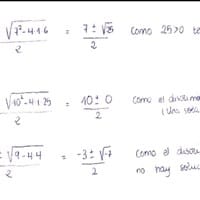 √7²-4·1·6 / 2 = 7 ± √25 / 2 Como 25>0 te
√10²-4·1·25 / 2 = 10 ± 0 / 2 Como el discrim
(Una solu
± √9-4·4 / 2 = -3 ± √-7 / 2 Como el discri
no hay soluc